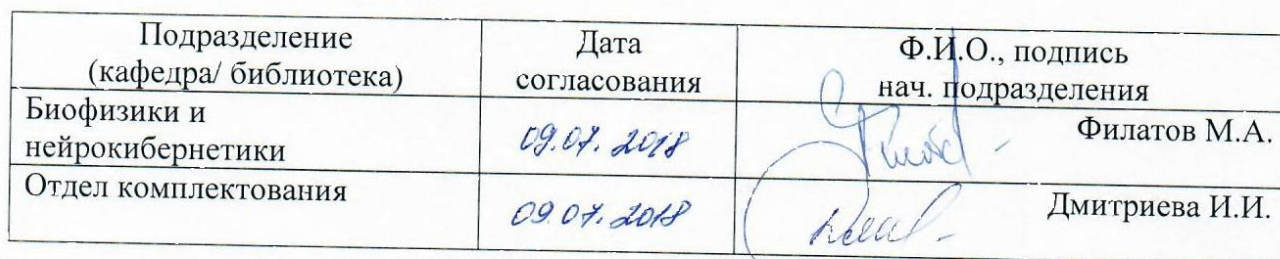 Подразделение
(кафедра/ библиотека)
Дата
согласования
Ф.И.О., подпись
нач. подразделения
Биофизики и
нейрокибернетики
09.07.2018
Филатов М.А.
Отдел комплектования
09.07.2018
Дмитриева И.И.